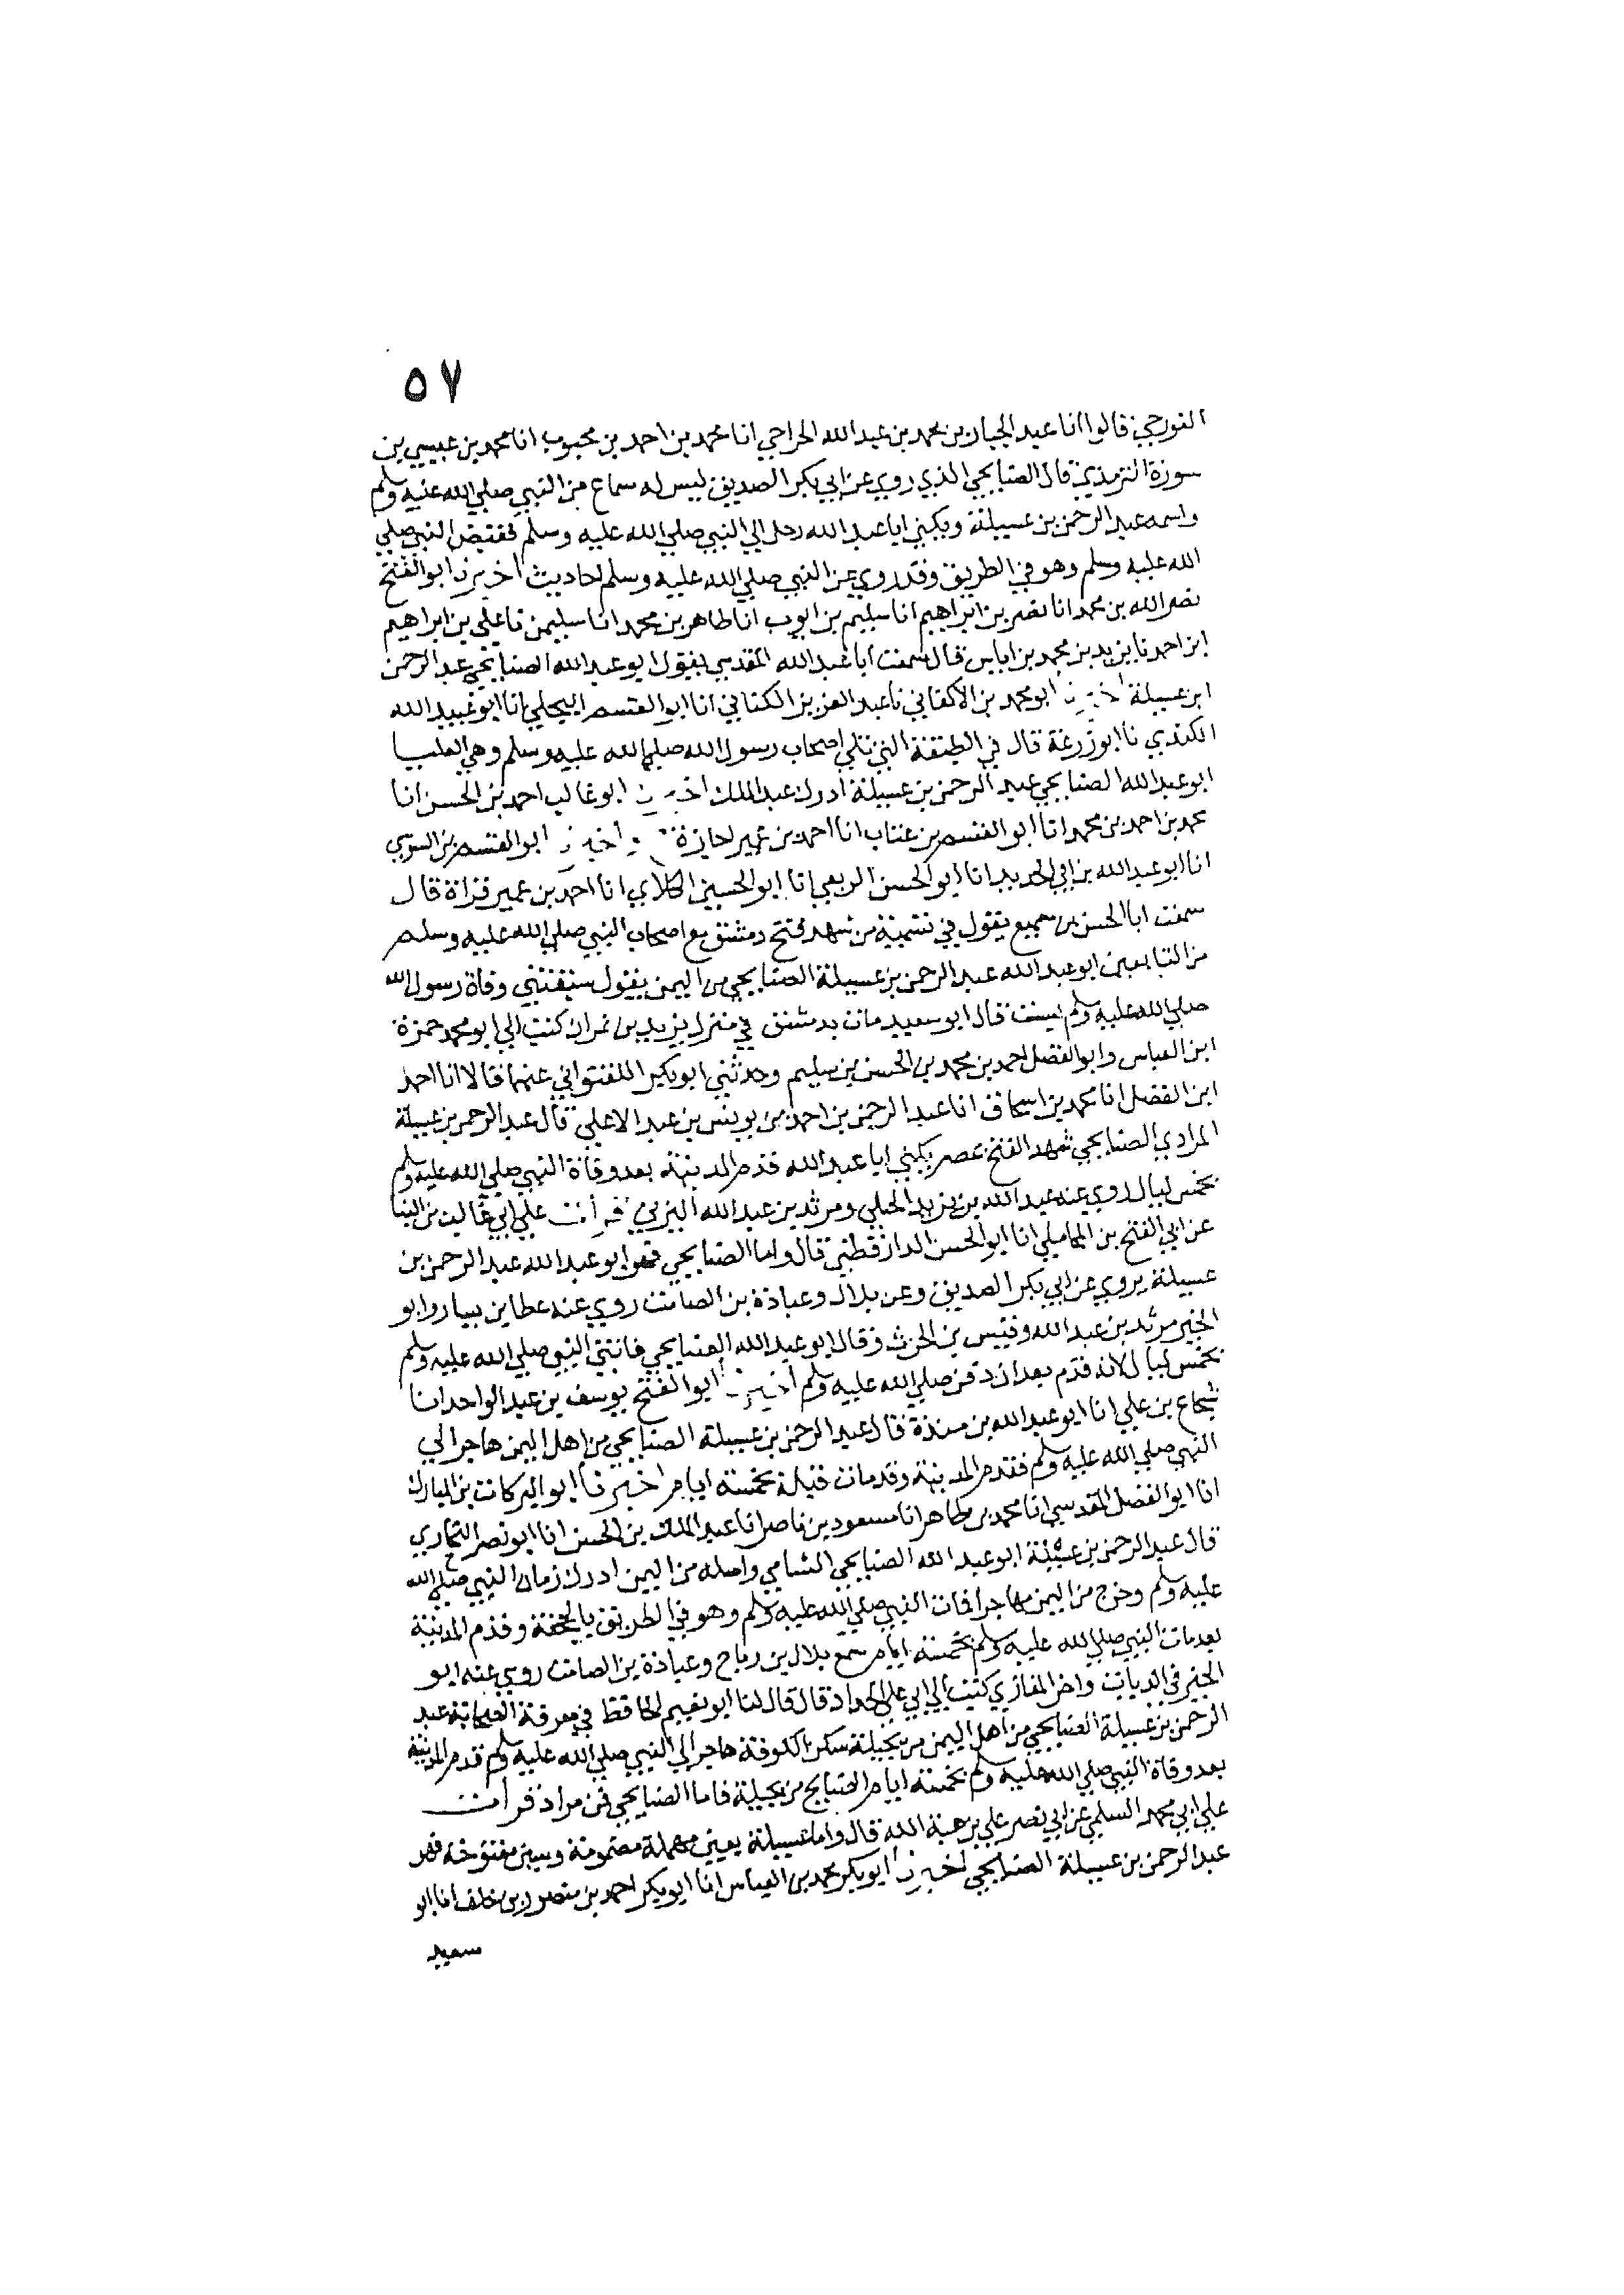 ٥٧
الغورجي قالوا انا عبد الجبار بن محمد بن عبد الله الجراحي انا محمد بن احمد بن محبوب انا محمد بن عيسي بن
سورة الترمذي قال الصنابحي الذي روي عن ابي بكر الصديق ليس له سماع من النبي صلي الله عليه وسلم
واسمه عبد الرحمن بن عسيلة ويكني ابا عبد الله رحل الي النبي صلي الله عليه وسلم فقبض النبي صلي
الله عليه وسلم وهو في الطريق وقد روي عن النبي صلي الله عليه وسلم احاديث اخبرنا ابو الفتح
نصر الله بن محمد انا نصر بن ابراهيم انا سليم بن ايوب انا طاهر بن محمد انا سليمن نا علي بن ابراهيم
ابن احمد نا يزيد بن محمد بن اياس قال سمعت ابا عبد الله المقدمي يقول ابو عبد الله الصنابحي عبد الرحمن
ابن عسيلة اخبرنا ابو محمد بن الاكفاني نا عبد العزيز الكتاني انا ابو القسم البجلي انا ابو عبد الله
الكندي نا ابو زرعة قال في الطبقة التي تلي اصحاب رسول الله صلي الله عليه وسلم وهي العليا
ابو عبد الله الصنابحي عبد الرحمن بن عسيلة ادرك عبد الملك اخبرنا ابو غالب احمد بن الحسن انا
محمد بن احمد بن محمد انا ابو القسم بن عتاب انا احمد بن عمير اجازة واخبرنا ابو القسم بن السوسي
انا ابو عبد الله بن ابي الحديد انا ابو الحسن الربعي انا ابو الحسين الكلابي انا احمد بن عمير قراة قال
سمعت ابا الحسن بن سميع يقول في تسمية من شهد فتح دمشق مع اصحاب النبي صلي الله عليه وسلم
من التابعين ابو عبد الله عبد الرحمن بن عسيلة الصنابحي من اليمن يقول سبقتني وفاة رسول الله
صلي الله عليه وسلم بست قال ابو سعيد مات بدمشق في منزل يزيد بن نمران كتب الي ابو محمد حمزة
ابن العباس وابو الفضل احمد بن محمد بن الحسن بن سليم وحدثني ابو بكر اللفتواني عنهما قالا انا احمد
ابن الفضل انا محمد بن اسحاق انا عبد الرحمن بن احمد بن يونس بن عبد الاعلي قال عبد الرحمن بن عسيلة
المرادي الصنابحي شهد الفتح بمصر يكني ابا عبد الله قدم المدينة بعد وفاة النبي صلي الله عليه وسلم
بخمس ليال روي عنه عبد الله بن يزيد الحبلي ومرثد بن عبد الله اليزني قرأت علي ابي غالب بن البنا
عن ابي الفتح بن المحاملي انا ابو الحسن الدارقطني قال واما الصنابحي فهو ابو عبد الله عبد الرحمن بن
عسيلة يروي عن ابي بكر الصديق وعن بلال وعبادة بن الصامت روي عنه عطا بن يسار وابو
الخير مرثد بن عبد الله وقيس بن الحرث وقال ابو عبد الله الصنابحي فاتني النبي صلي الله عليه وسلم
بخمس ليال لانه قدم بعد ان دفن صلي الله عليه وسلم اخبرنا ابو الفتح يوسف بن عبد الواحد انا
شجاع بن علي انا ابو عبد الله بن مندة قال عبد الرحمن بن عسيلة الصنابحي من اهل اليمن هاجر الي
النبي صلي الله عليه وسلم فقدم المدينة وقد مات قبله بخمسة ايام اخبرنا ابو البركات بن المبارك
انا ابو الفضل المقدسي انا محمد بن طاهر انا مسعود بن ناصر انا عبد الملك بن الحسن انا ابو نصر البخاري
قال عبد الرحمن بن عسيلة ابو عبد الله الصنابحي الشامي واصله من اليمن ادرك زمان النبي صلي الله
عليه وسلم وخرج من اليمن مهاجرا فمات النبي صلي الله عليه وسلم وهو في الطريق بالجحفة وقدم المدينة
بعد مات النبي صلي الله عليه وسلم بخمسة ايام سمع بلال بن رباح وعبادة بن الصامت روي عنه ابو
الخير في الديات واخر المغازي كتب الي ابي علي الحداد قال قال لنا ابو نعيم الحافظ في معرفة الصحابة عبد
الرحمن بن عسيلة الصنابحي من اهل اليمن من بجيلة سكن الكوفة هاجر الي النبي صلي الله عليه وسلم قدم المدينة
بعد وفاة النبي صلي الله عليه وسلم بخمسة ايام الصنابح من بجيلة فاما الصنابحي فمن مراد قرأت
علي ابي محمد السلمي عن ابي نصر علي بن هبة الله قال واما عسيلة بعين مهملة مضمومة وسين مفتوحة فهو
عبد الرحمن بن عسيلة الصنابحي اخبرنا ابو بكر محمد بن العباس انا ابو بكر احمد بن منصور بن خلف انا ابو
سعيد